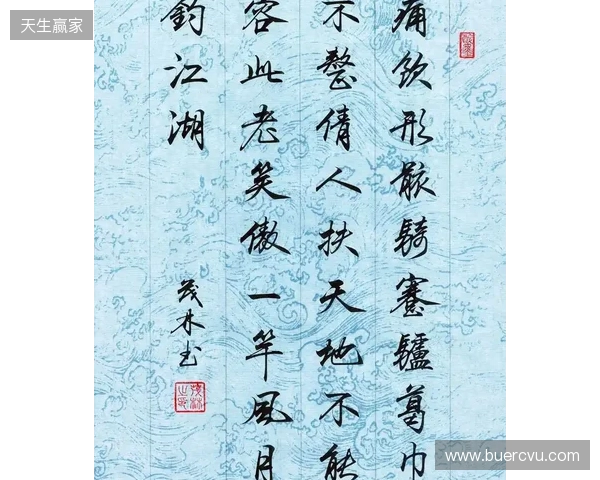 天生赢家
痛饮形骸骑蹇驴葛巾
不整倩人扶天地不能
容此老笑傲一竿风月
钓江湖
茂林书
www.buercvu.com